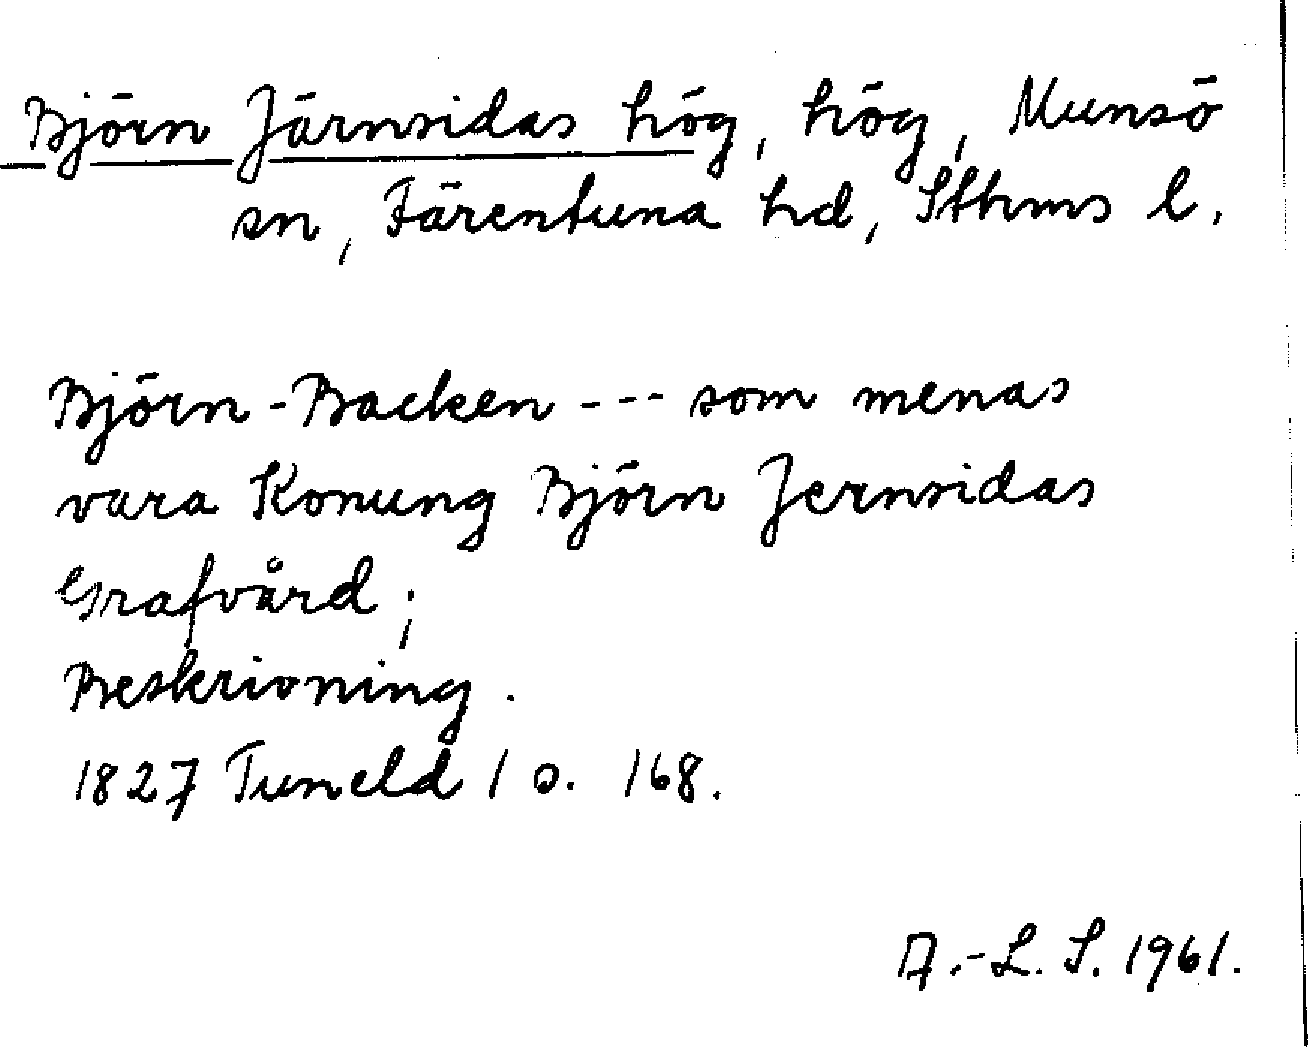 Björn Järnsidas hög, hög, Munsö
sn, Färentuna hd, Sthms l.
Björn-Backen --- som menas
vara Konung Björn Jernsidas
Grafvård;
Beskrivning.
1827 Tuneld 1 o. 168.
A.-L. S. 1961.